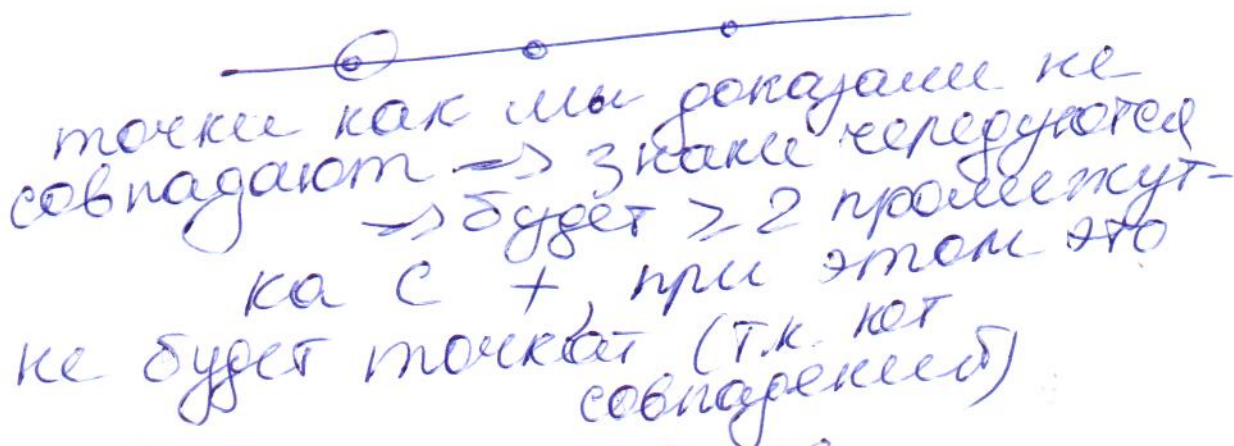 точки как мы доказали не
совпадают → знаки чередуются
→ будет ≥ 2 промежут-
ка с +, при этом это
не будет точкой (т.к. нет
совпадений)